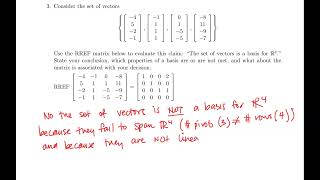 3. Consider the set of vectors
{ [-4 5 -2 -1], [-1 1 -1 1], [0 1 -5 -5], [-8 11 -5 -7] }
Use the RREF matrix below to evaluate this claim: "The set of vectors is a basis for R⁴."
State your conclusion, which properties of a basis are or are not met, and what about the
matrix is associated with your decision:
RREF [-4 -1 0 -8; 5 1 1 11; -2 -1 -5 -5; -1 1 -5 -7] = [1 0 0 2; 0 1 0 0; 0 0 1 1; 0 0 0 0]
No the set of vectors is NOT a basis for R⁴
because they fail to span R⁴ (# pivots (3) ≠ # rows (4))
and because they are NOT linea